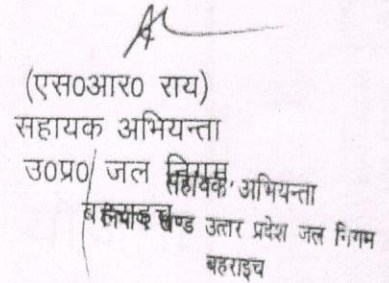 (एस0आर0 राय)
सहायक अभियन्ता
उ0प्र0 जल निगम
बहराइच
सहायक अभियन्ता
खण्ड उत्तर प्रदेश जल निगम
बहराइच